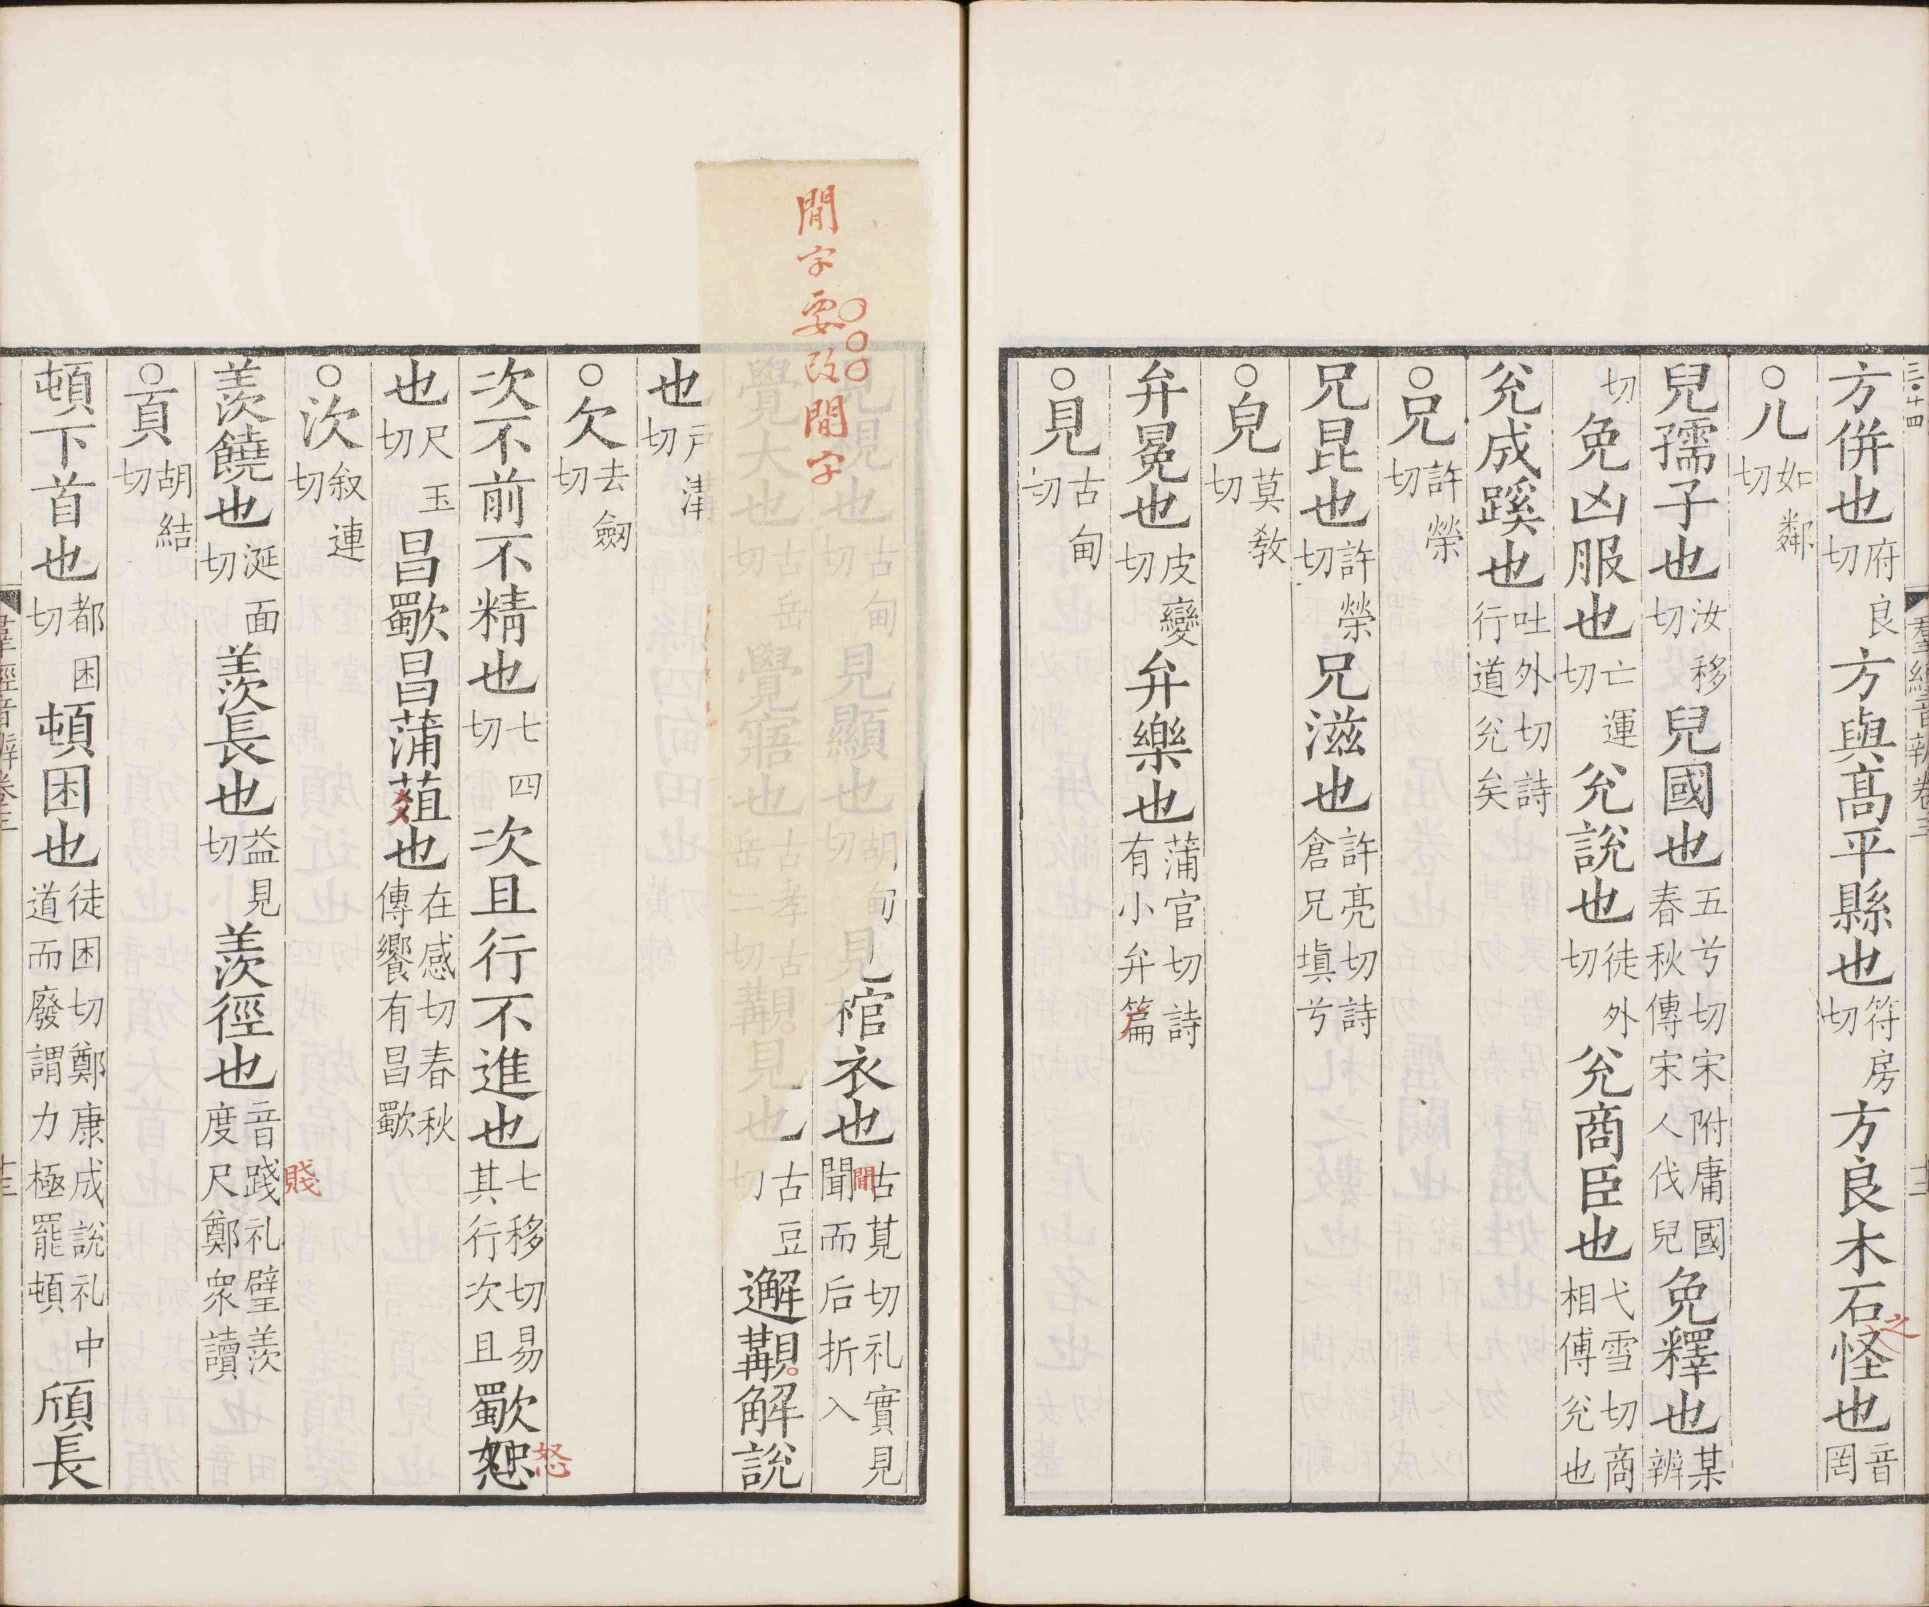 方併也府良切方與髙平縣也符房切方良木石怪也音罔
之
○儿如鄰切
兒孺子也汝移切兒國也五兮切宋附庸國春秋傳宋人伐兒免釋也某辨
切免凶服也亡運切兊說也徒外切兊商臣也弋雪切商相傅兊也
兊成蹊也吐外切詩行道兊矣
○兄許榮切
兄昆也許榮切兄滋也許亮切詩倉兄填兮
○皃莫教切
弁冕也皮變切弁樂也蒲官切詩有小弁篇
○見古甸切
閒字要改間字
○○○
見視也古甸切見顯也胡甸切見棺衣也古莧切礼實見聞而后折入
間
覺大也古岳切覺寤也古孝古岳二切覯見也古豆切邂覯解說
也戶溝切
○欠去劒切
次不前不精也七四切次且行不進也七移切易其行次且歜怒
怒
也尺玉切昌歜昌蒲菹也在感切春秋傳饗有昌歜
○㳄叙連切
羨饒也涎面切羨長也益見切羨徑也音踐礼璧羨度尺鄭衆讀
賤
○頁胡結切
頓下首也都困切頓困也徒困切鄭康成說礼中道而廢謂力極罷頓頎長